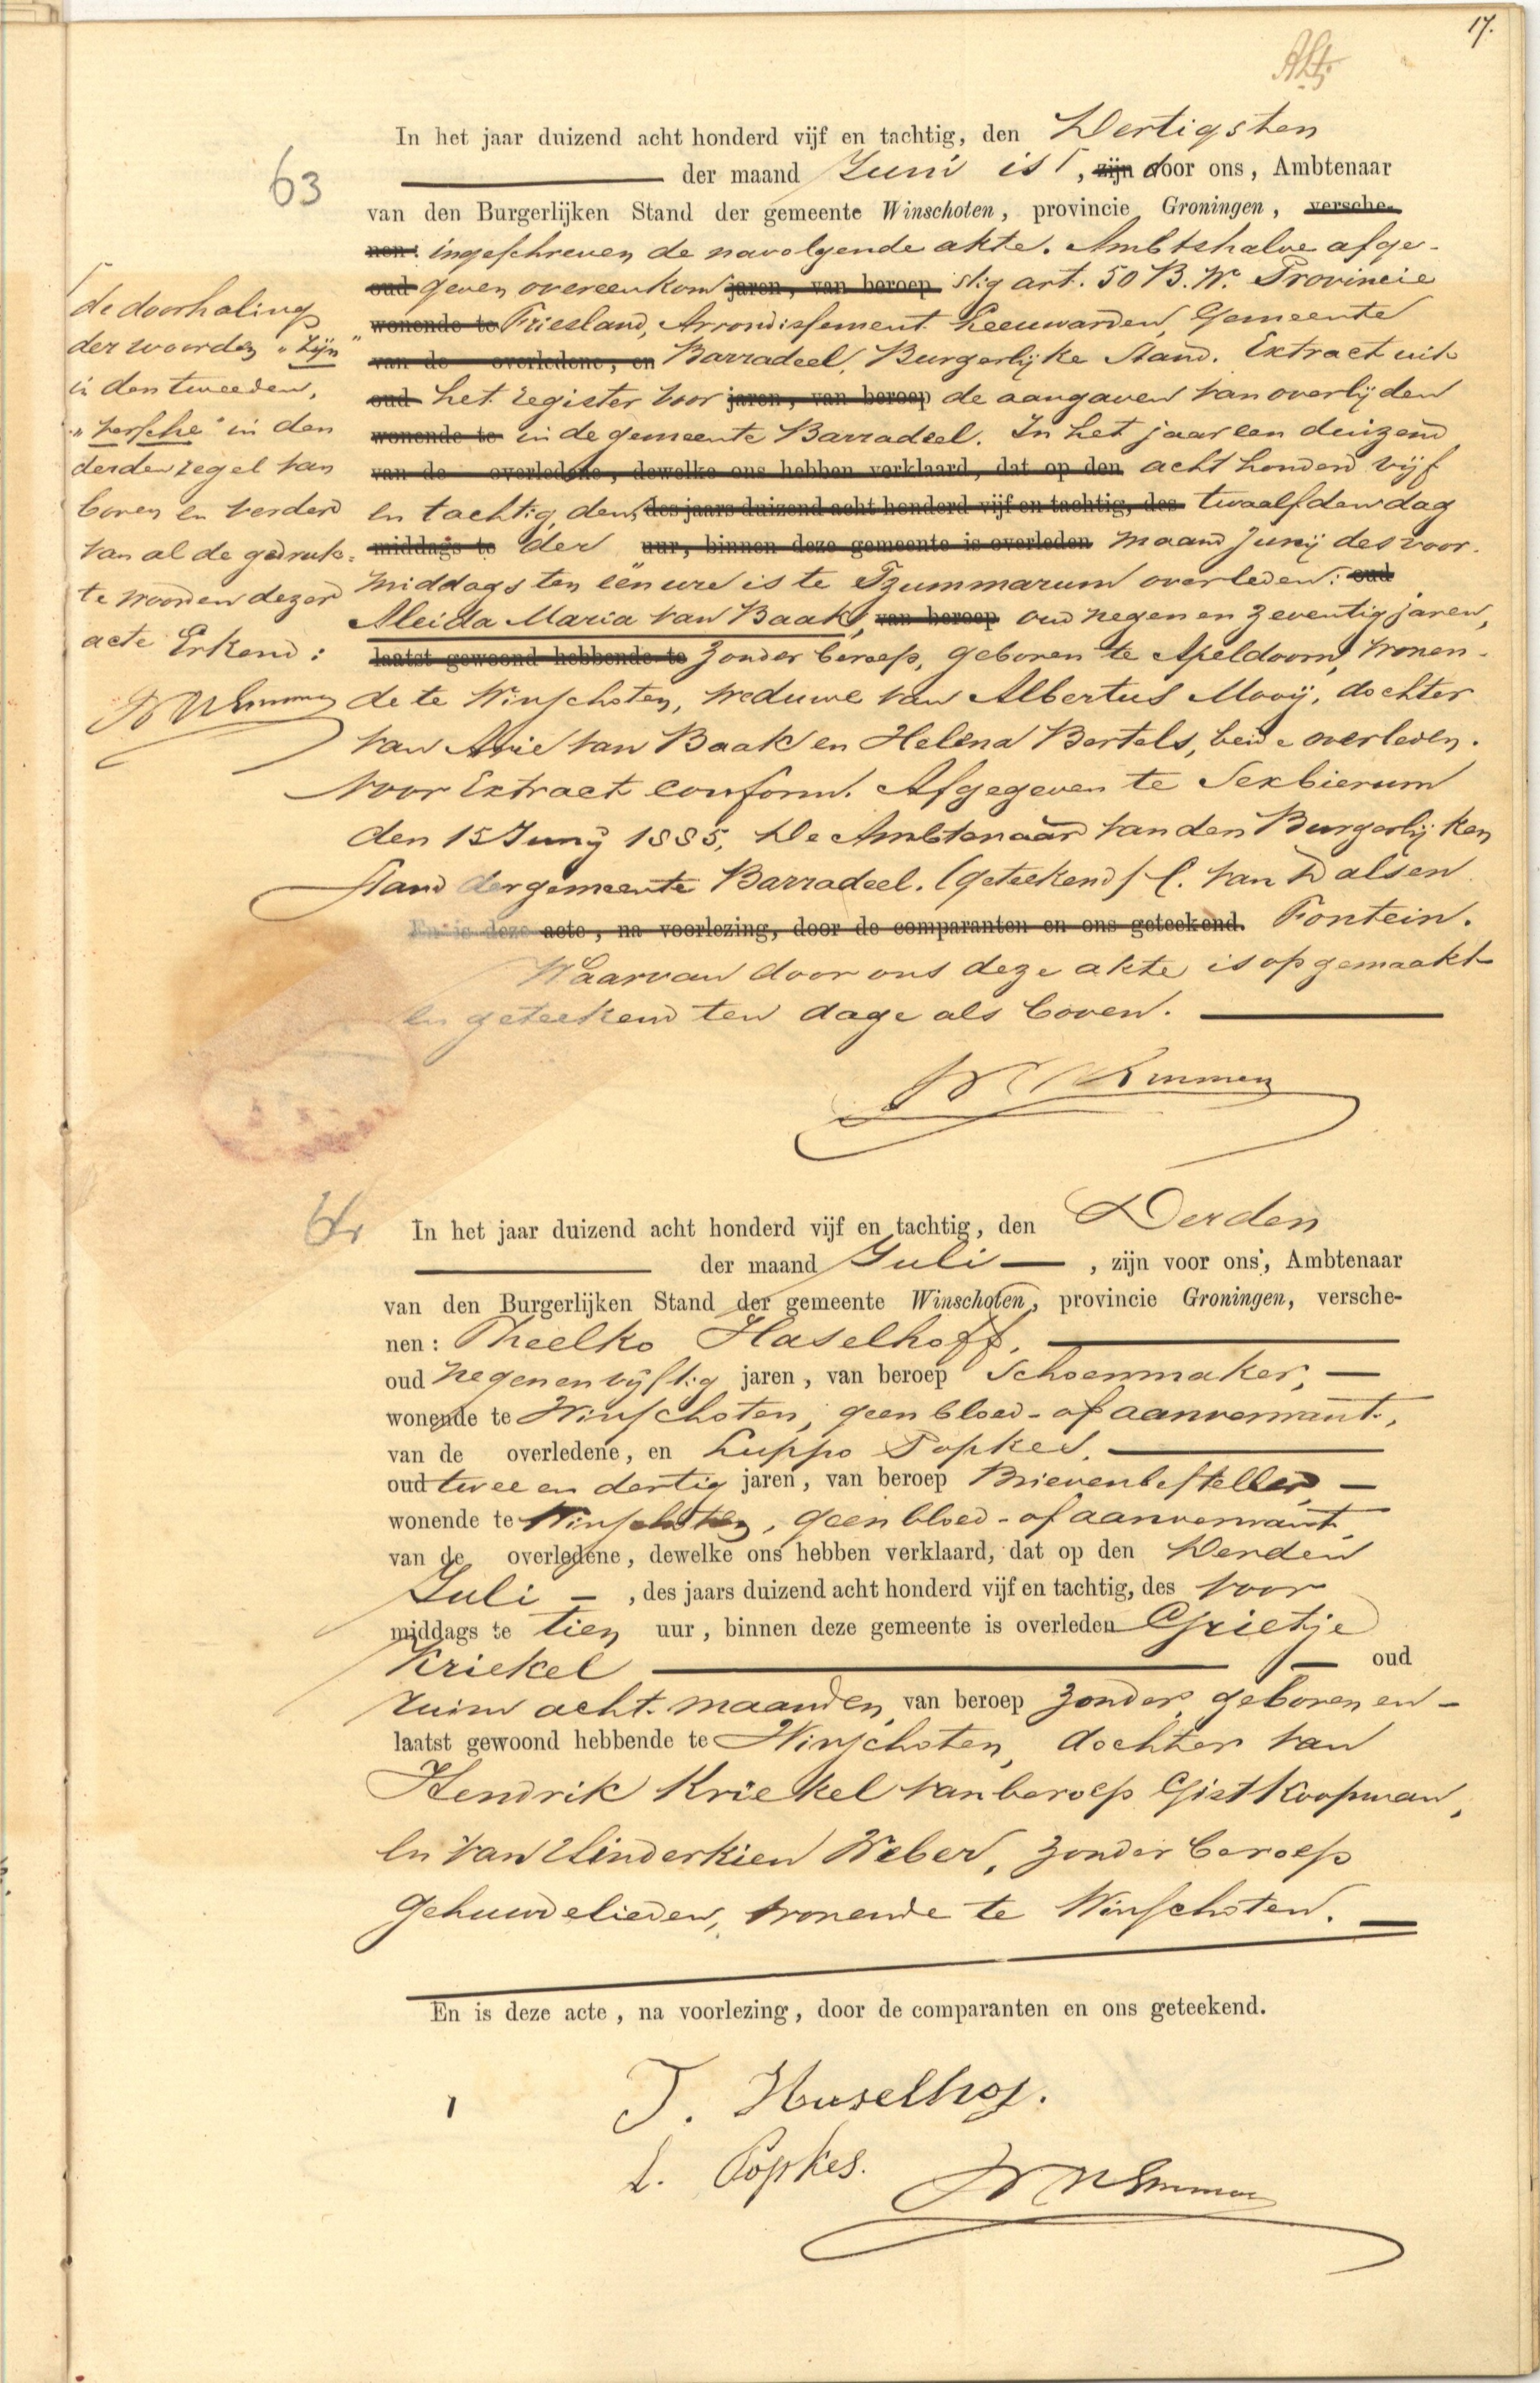 17.
In het jaar duizend acht honderd vijf en tachtig, den Dertigsten
63
der maand Juni is, zijn door ons, Ambtenaar
van den Burgerlijken Stand der gemeente Winschoten, provincie Groningen, versche-
nen: ingeschreven de navolgende akte. Ambtshalve afge-
oud geven overeenkom jaren, van beroep stig art. 50 B.W. Provincie
wonende te Friesland, Arrondissement Leeuwarden, Gemeente
van de overledene, en Barradeel, Burgerlijke Stand. Extract uit
oud het register voor jaren, van beroep de aangaven van overlijden
wonende te in de gemeente Barradeel. In het jaar een duizend
van de overledene, dewelke ons hebben verklaard, dat op den acht honderd vijf
en tachtig, den, des jaars duizend acht honderd vijf en tachtig, des twaalfden dag
middags te der uur, binnen deze gemeente is overleden maand Junij des voor-
middags ten één ure is te Tzummarum overleden: oud
Aleida Maria van Baak, van beroep oud negen en zeventig jaren,
laatst gewoond hebbende te zonder beroep, geboren te Apeldoorn, wonen-
de te Winschoten, weduwe van Albertus Mooij, dochter
van Arie van Baak en Helena Bertels, beide overleden.
Voor Extract conform. Afgegeven te Sexbierum
den 15 Junij 1885. De Ambtenaar van den Burgerlijken
Stand der gemeente Barradeel. (geteekend) C. van Dalsen
En is deze acte, na voorlezing, door de comparanten en ons geteekend. Fontein.
Waarvan door ons deze akte is opgemaakt
en geteekend ten dage als boven.
de doorhaling
der woorden "zijn"
in den tweeden,
"versche" in den
derden regel van
boven en verder
van al de gedruk-
te woorden dezer
acte Erkend:
64
In het jaar duizend acht honderd vijf en tachtig, den Derden
der maand Juli, zijn voor ons, Ambtenaar
van den Burgerlijken Stand der gemeente Winschoten, provincie Groningen, versche-
nen: Theelko Haselhoff,
oud negen en vijftig jaren, van beroep Schoenmaker,
wonende te Winschoten, geen bloed- of aanverwant,
van de overledene, en Luppo Popkes,
oud twee en dertig jaren, van beroep Brievenbesteller,
wonende te Winschoten, geen bloed- of aanverwant,
van de overledene, dewelke ons hebben verklaard, dat op den Derden
Juli, des jaars duizend acht honderd vijf en tachtig, des voor
middags te tien uur, binnen deze gemeente is overleden Grietje
Kriekel oud
ruim acht maanden, van beroep zonder, geboren en
laatst gewoond hebbende te Winschoten, dochter van
Hendrik Kriekel van beroep Gistkoopman,
en van Hinderkien Weber, zonder beroep
gehuwdelieden, wonende te Winschoten.
En is deze acte, na voorlezing, door de comparanten en ons geteekend.
T. Haselhof.
L. Popkes.